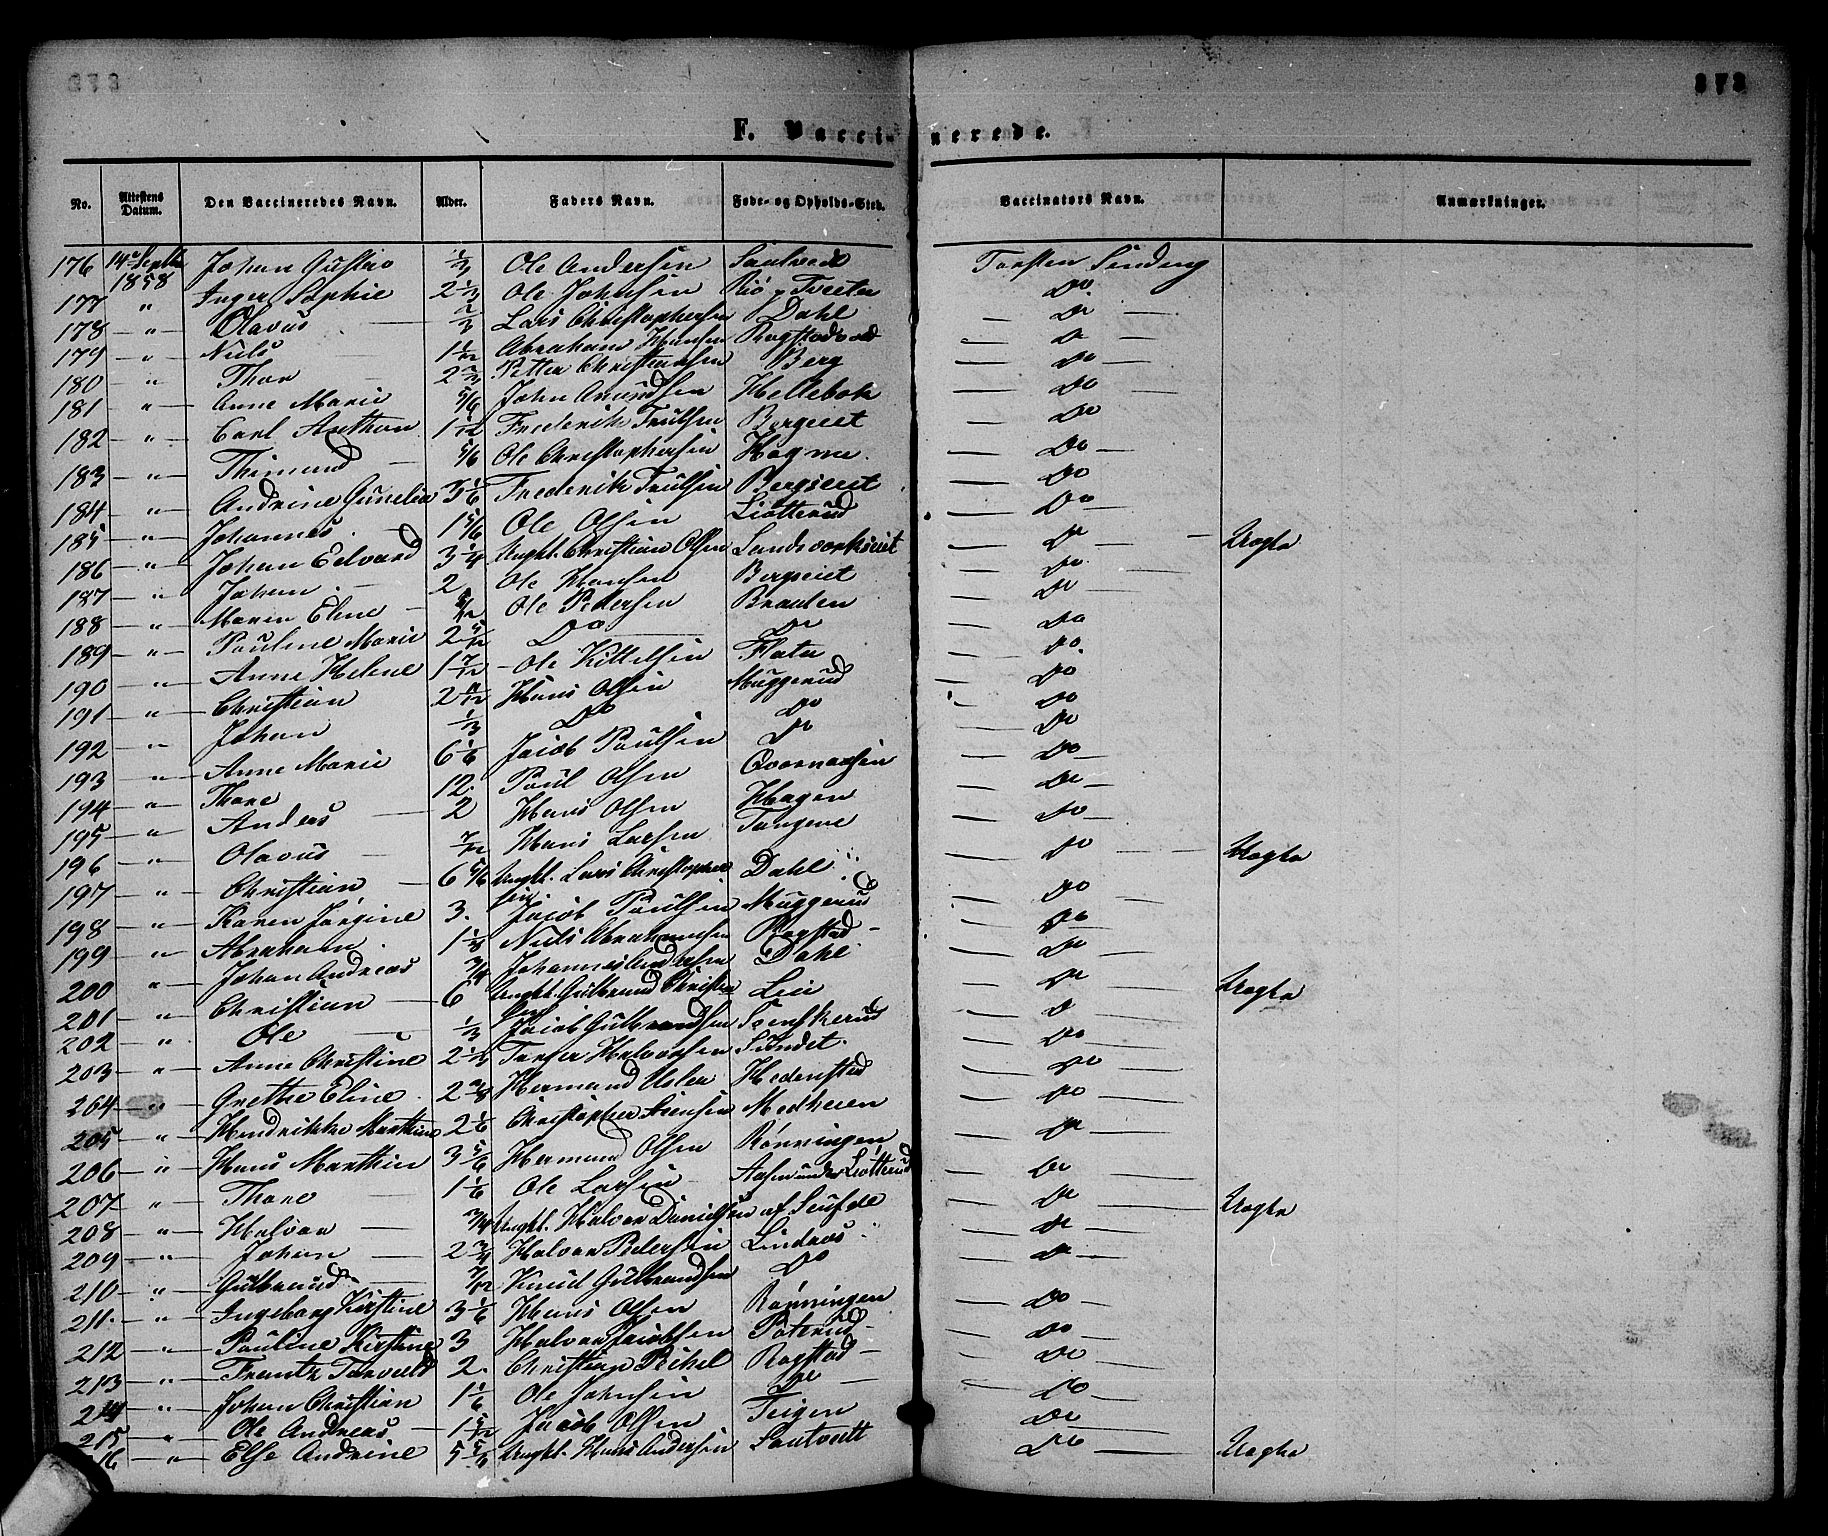 373
F. Vaccinerede.
No. Attestens Datum. Den Vaccineredes Navn. Alder. Faders Navn. Føde- og Opholds-Sted. Vaccinators Navn. Anmærkninger.
176 14de Septbr 1858 Johan Gustav 1/3 Ole Andersen Sautvedt Torsten Sinding
177 " Inger Sophie 2 1/3 Ole Johnsen Do
178 " Olavus 2/3 Lars Christophersen Dahl Do
179 " Niels 1 1/12 Abraham Hansen Do
180 " Thor 2 2/3 Petter Christiansen Berg Do
181 " Anne Marie 5/6 John Amundsen Hellebæk Do
182 " Carl Anthon 1 1/12 Frederik Trulsen Bergseiet Do
183 " Thimand 5/6 Ole Christophersen Hagene Do
184 " Andrine Gunelia 3 1/6 Frederik Trulsen Bergseiet Do
185 " Johannes 1 5/6 Ole Olsen Liøtterud Do
186 " Johan Edvard 3 1/4 Ungkl. Christian Olsen Sandsværkseiet Do Uægte
187 " Johan 2 Ole Hansen Bergseiet Do
188 " Maren Eline 5/12 Ole Pedersen Braaten Do
189 " Pauline Marie 2 5/12 Do Do Do
190 " Anne Helene 1 7/12 Ole Kittelsen Flata Do
191 " Christian Hans Olsen Muggerud Do
192 " Johan 1/3 Do Do Do
193 " Anne Marie 6 1/6 Jacob Paulsen Do Do
194 " Thore 12 Paul Olsen Qværnaasen Do
195 " Anders 2 Hans Olsen Hagen Do
196 " Olavus 7/12 Hans Larsen Tangene Do
197 " Christian 6 5/6 Ungkl. Lars Christophersen Dahl Do Uægte
198 " Karen Jørgine 3 Jacob Paulsen Muggerud Do
199 " Abraham 1 1/8 Niels Abrahamsen Rogstad Do
200 " Johan Andreas 3/4 Johannes Andersen Dahl Do
201 " Christian 6 Ungkl. Gulbrand Christensen Lei Do Uægte
202 " Ole 1/3 Jacob Gulbrandsen Svenskerud Do
203 " Anne Christine 2 1/2 Torger Halvorsen Sundet Do
204 " Grethe Eline Hermand Uslea Hedenstad Do
205 " Hendrikke Marthine 2 1/6 Christopher Svensen Medheien Do
206 " Hans Marthin 3 5/6 Hermand Olsen Rønningen Do
207 " Thore 1 1/6 Ole Larsen Aasen under Liøtterud Do
208 " Halvor 3/4 Ungkl. Halvor Danielsen af Do Uægte
209 " Johan 2 3/4 Halvor Pedersen Lindaas Do
210 " Gulbrand 7/12 Knud Gulbrandsen Do Do
211 " Ingeborg Kirstine 3 1/6 Hans Olsen Rønningen Do
212 " Pauline Kirstine 3 Halvor Jacobsen Poterud Do
213 " Frantz Torvald 2 Christian Peckel Rogstad Do
214 " Johan Christian 1 1/6 Ole Johnsen Do Do
215 " Ole Andreas 1 5/12 Jacob Olsen Teigen Do
216 " Else Andrine 5 5/6 Ungkl. Hans Andersen Sautvedt Do Uægte